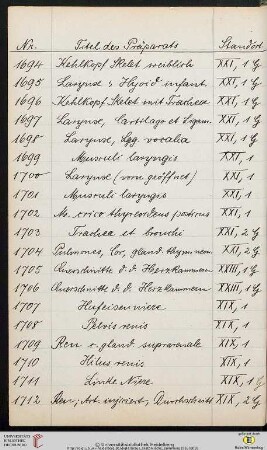 Nr. Titel des Präparats Standort
1694 Kehlkopf Skelet weiblich XXI, 1 G
1695 Larynx & Hyoid infant. XXI, 1 G
1696 Kehlkopf Skelet mit Trachea XXI, 1 G
1697 Larynx, Cartilago et Ligam. XXI, 1 G
1698 Larynx, Lgg. vocalia XXI, 1 G
1699 Musculi laryngis XXI, 1
1700 Larynx (vorn geöffnet) XXI, 1
1701 Musculi laryngis XXI, 1
1702 Ms. crico thyreoideus posticus XXI, 1
1703 Trachea et bronchi XXI, 2 G
1704 Pulmones, Cor, gland. thymi XXI, 2 G
1705 Querschnitte d. d. Herzkammern XXIII, 1 G
1706 Querschnitte d. d. Herzkammern XXIII, 1 G
1707 Hufeisenniere XIX, 1
1708 Pelvis renis XIX, 1
1709 Ren r. gland. suprarenale XIX, 1
1710 Hilus renis XIX, 1
1711 Linke Niere XIX, 1 G
1712 Ren, Art. injiciert, Durchschnitt XIX, 2 G
UNIVERSITÄTS-
BIBLIOTHEK
HEIDELBERG
© Universitätsbibliothek Heidelberg